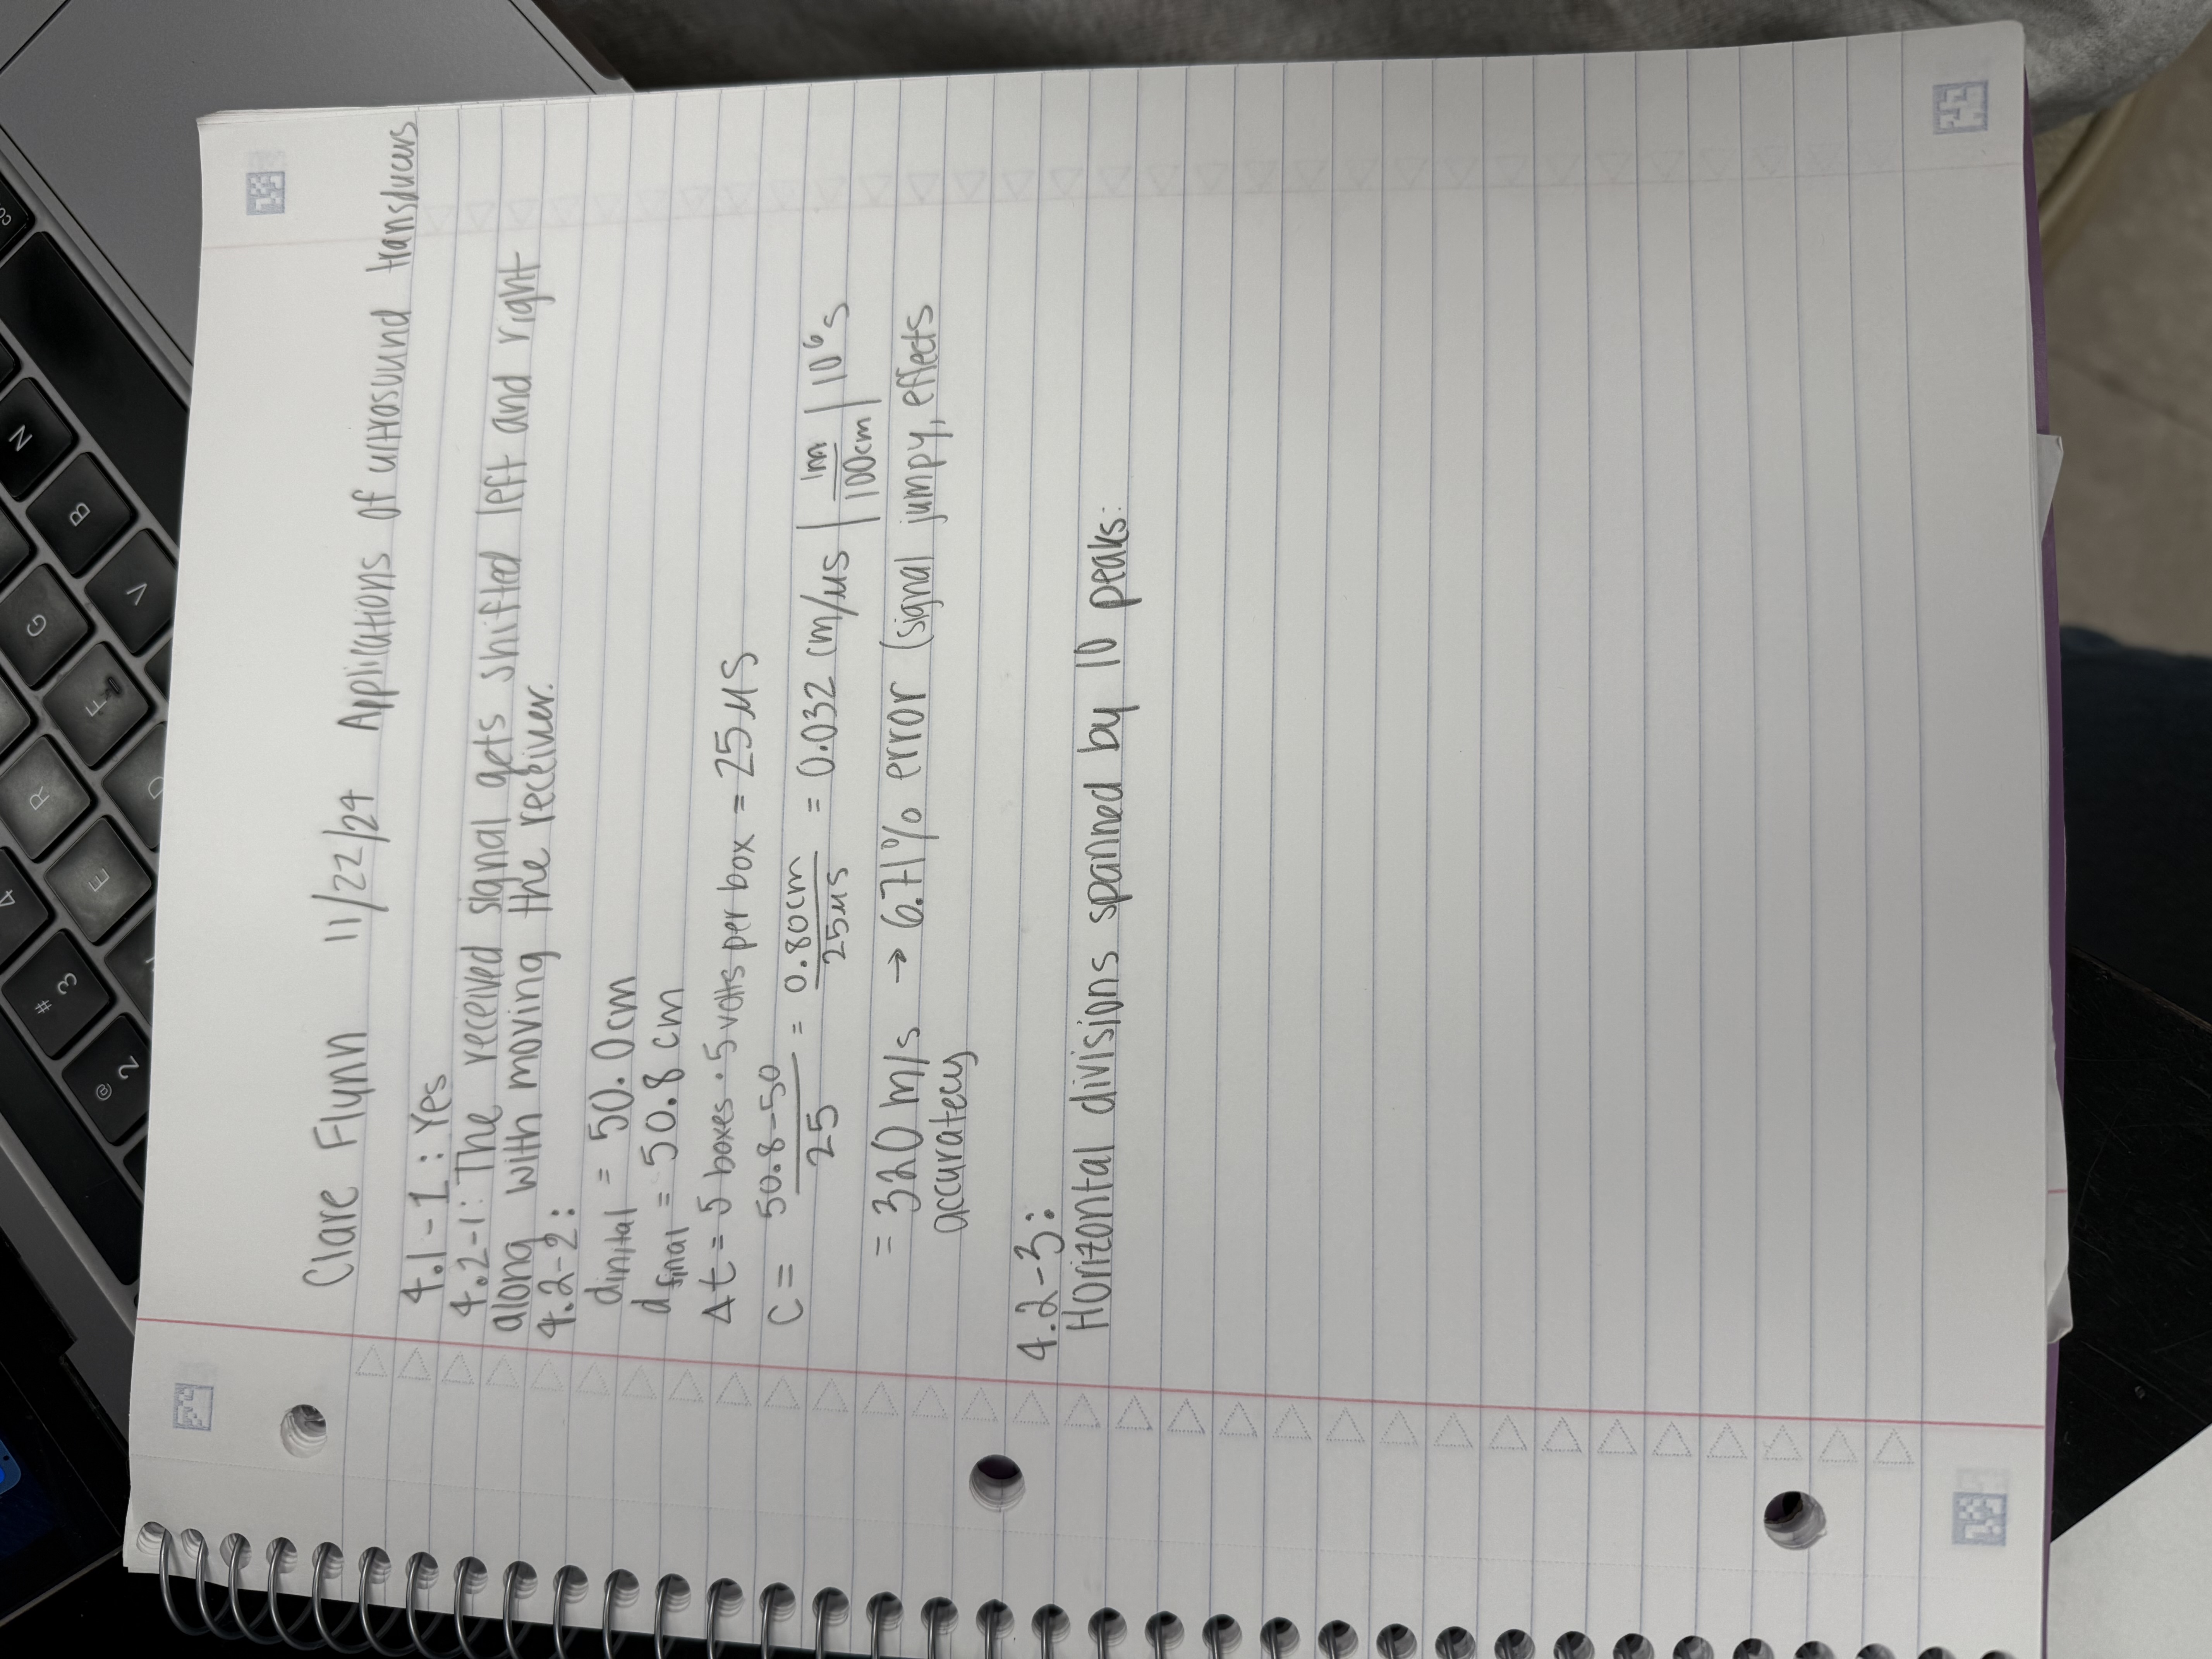 # 3
4
@ 2
E
R
D
F
G
V
B
N
Clare Flynn 11/22/24 Applications of ultrasound transducers
4.1-1: Yes
4.2-1: The received signal gets shifted left and right
along with moving the receiver.
4.2-2:
dinital = 50.0cm
dfinal = 50.8 cm
Δt = 5 boxes · 5 volts per box = 25μs
C = 50.8-50/25 = 0.80cm/25μs = 0.032 cm/μs | 1m/100cm | 10⁶s
= 320 m/s → 6.71% error (signal jumpy, effects
accuratecy
4.2-3:
Horizontal divisions spanned by 10 peaks: